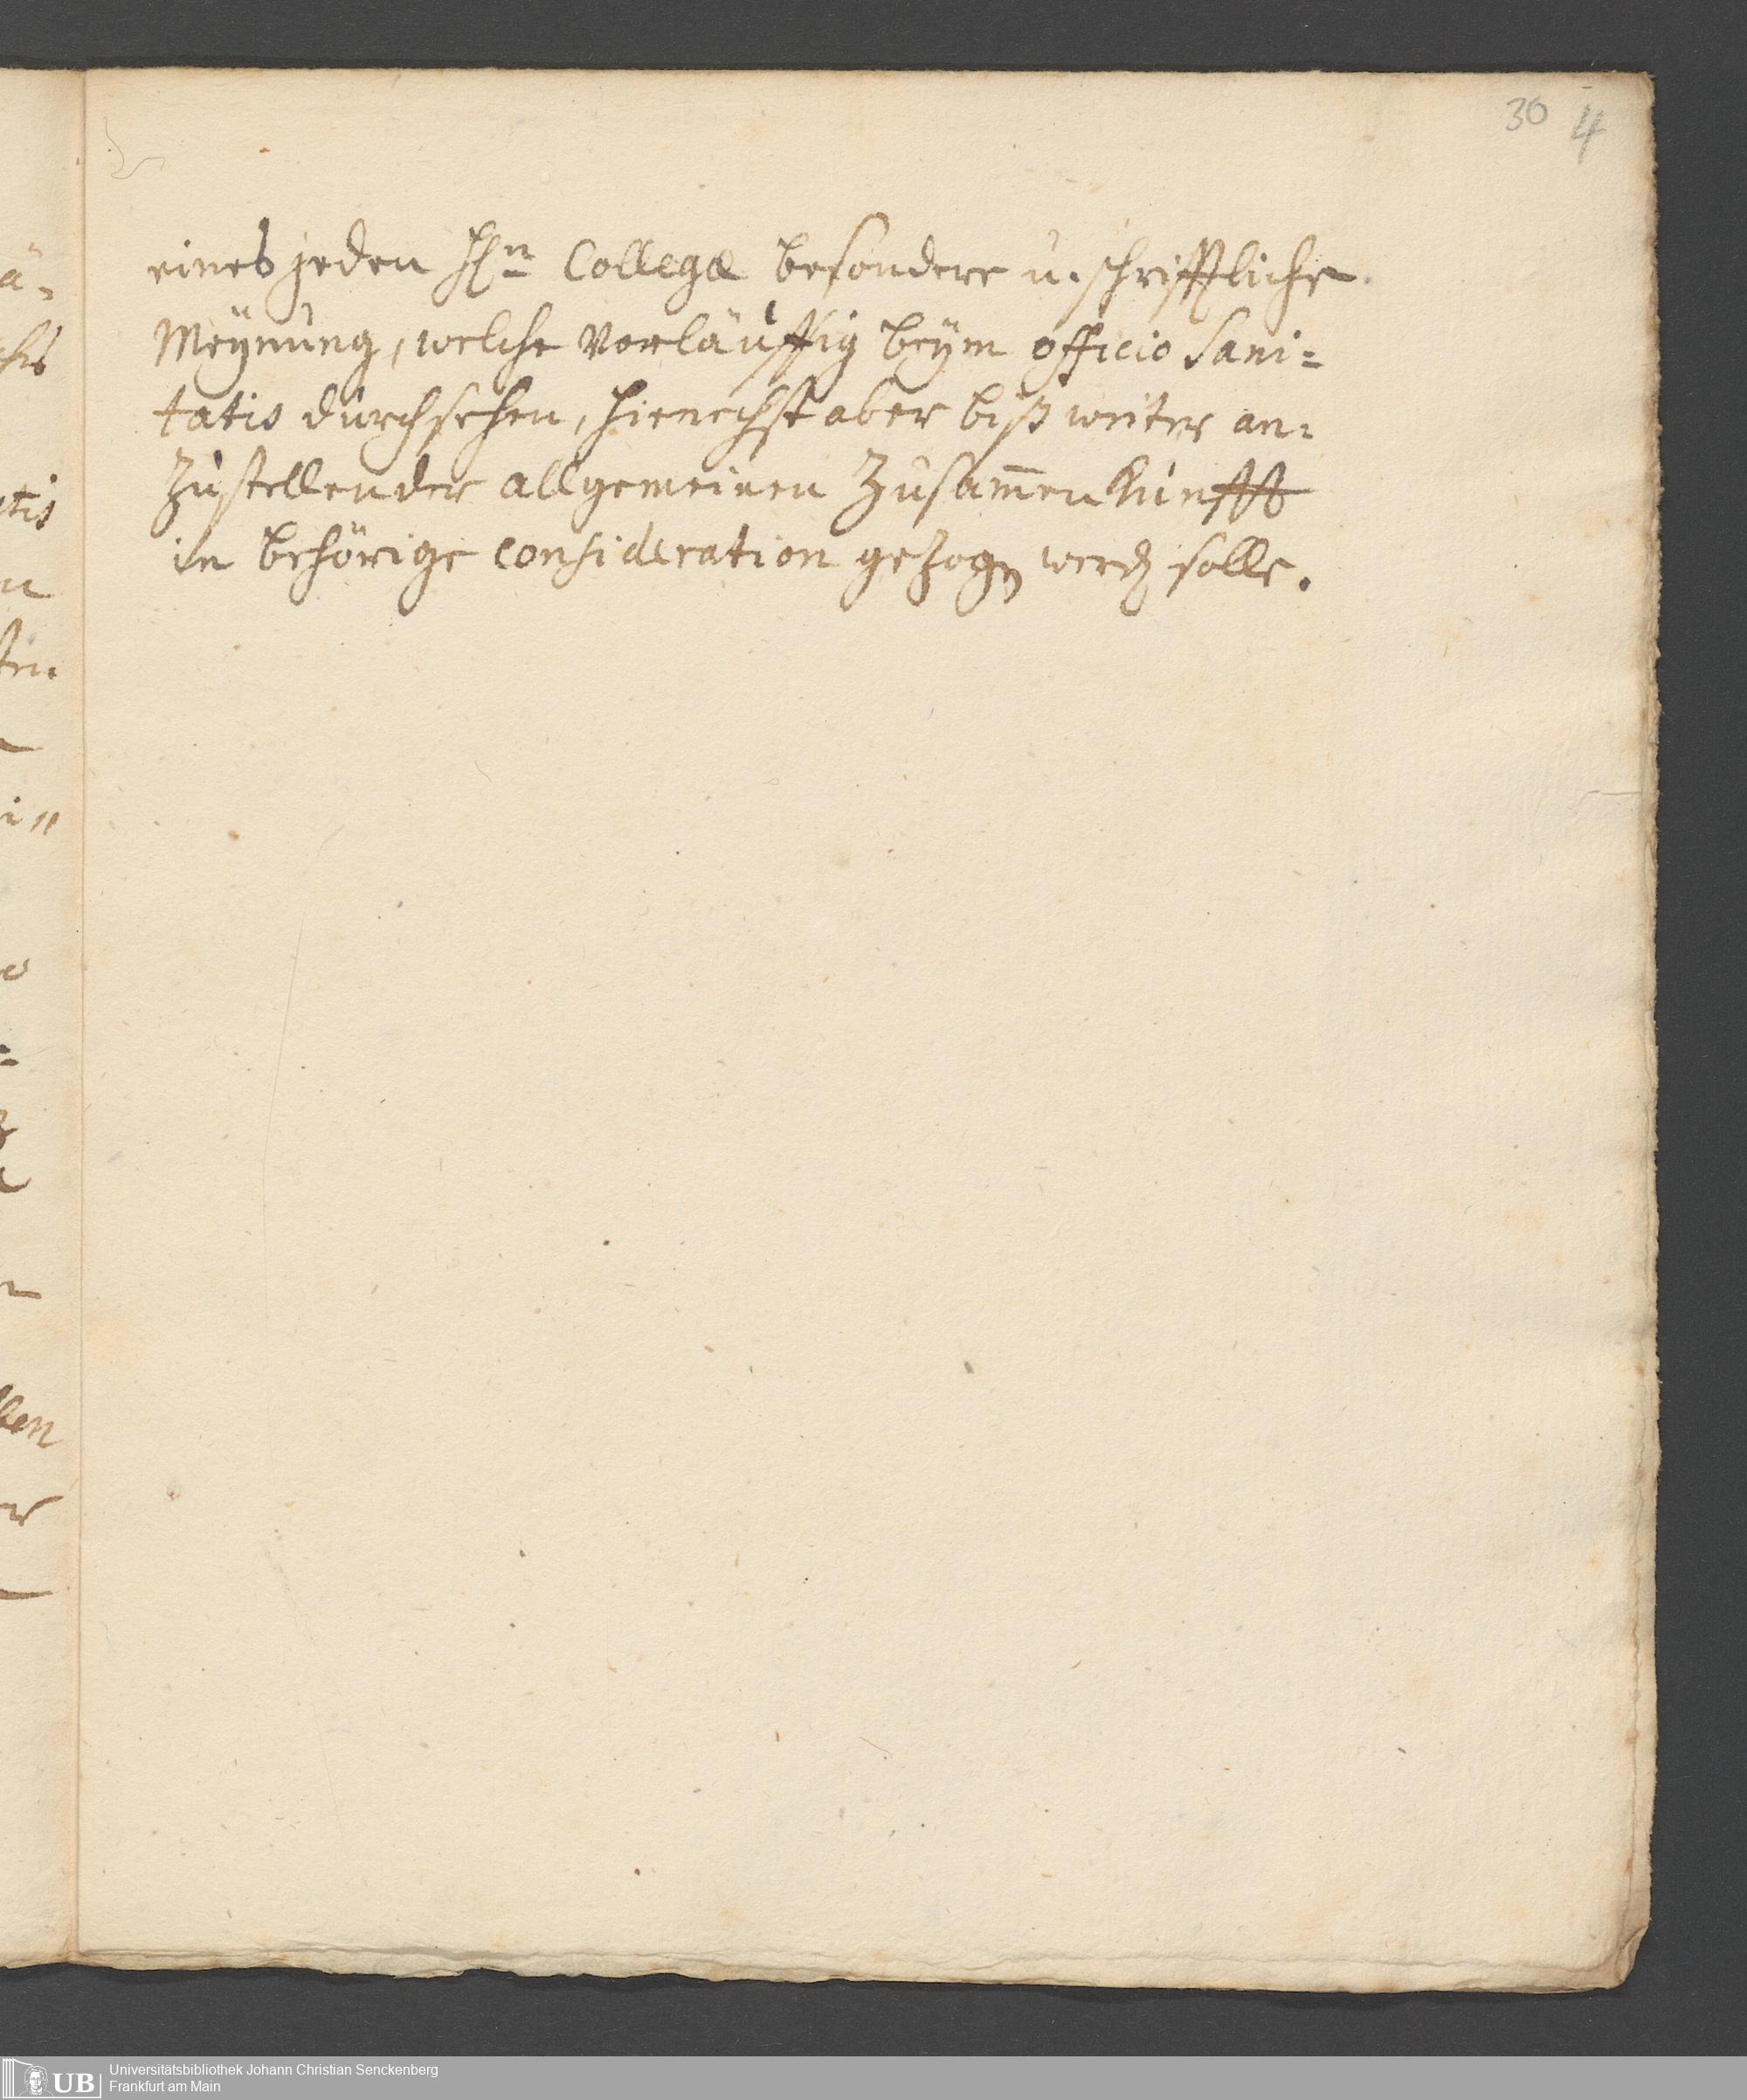 30 4
eines jeden Hn Collegæ besondere u. schrifftliche
Meÿnung, welche vorläuffig beÿm officio Sani=
tatis durchsehen, hienechst aber biß weiter an=
zustellender allgemeinen Zusam̅enkunfft
in behörige consideration gezogen werden solle.
ä=
tis
n
i"
n
UB Universitätsbibliothek Johann Christian Senckenberg
Frankfurt am Main